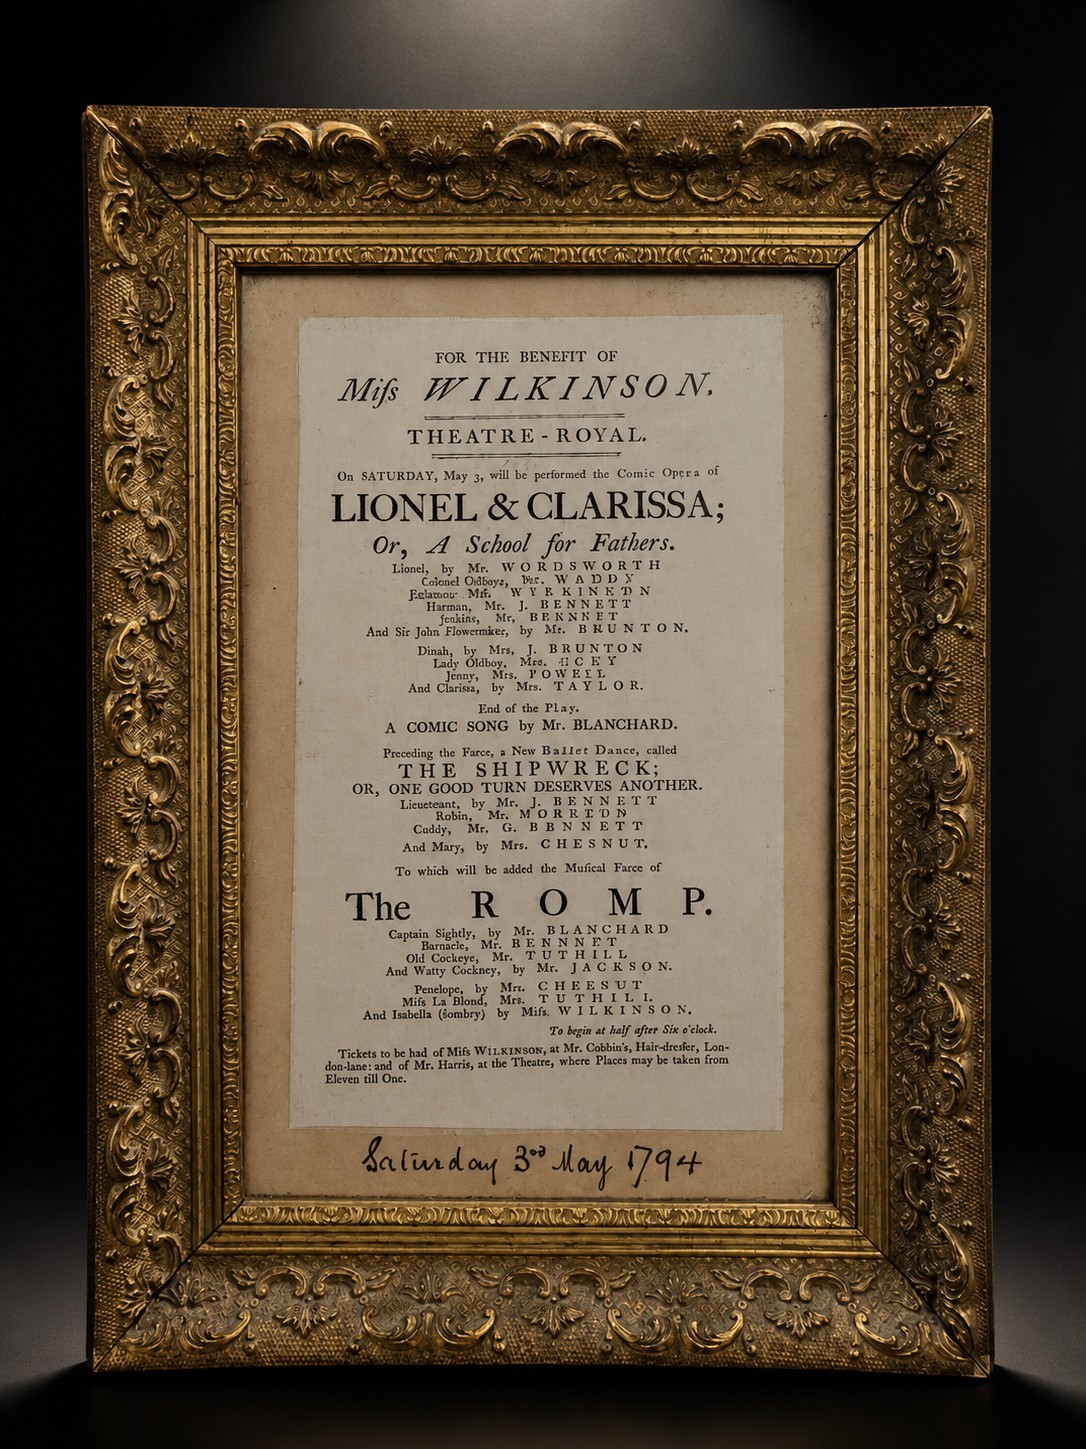 FOR THE BENEFIT OF
Miſs WILKINSON.
THEATRE - ROYAL.
On SATURDAY, May 3, will be performed the Comic Opera of
LIONEL & CLARISSA;
Or, A School for Fathers.
Lionel, by Mr. WORDSWORTH
Colonel Oldboys, WADDY
Harman, Mr. J. BENNETT
Jenkins, Mr, BENNNET
And Sir John Flowermker, by Mr. BRUNTON.
Dinah, by Mrs, J. BRUNTON
Lady Oldboy, Mrs.
Jenny, Mrs. POWELL
And Clarissa, by Mrs. TAYLOR.
End of the Play.
A COMIC SONG by Mr. BLANCHARD.
Preceding the Farce, a New Ballet Dance, called
THE SHIPWRECK;
OR, ONE GOOD TURN DESERVES ANOTHER.
Lieueteant, by Mr. J. BENNETT
Robin, Mr.
Cuddy, Mr. G. BBNNETT
And Mary, by Mrs. CHESNUT.
To which will be added the Muſical Farce of
The ROMP.
Captain Sightly, by Mr. BLANCHARD
Barnacle, Mr. BENNNET
Old Cockeye, Mr. TUTHILL
And Watty Cockney, by Mr. JACKSON.
Penelope, by CHEESUT
Miſs La Blond, Mrs. TUTHILL
And Isabella (sombry) by Miſs. WILKINSON.
To begin at half after Six o'clock.
Tickets to be had of Miſs WILKINSON, at Mr. Cobbin's, Hair-dreſſer, Lon-
don-lane: and of Mr. Harris, at the Theatre, where Places may be taken from
Eleven till One.
Saturday 3rd May 1794